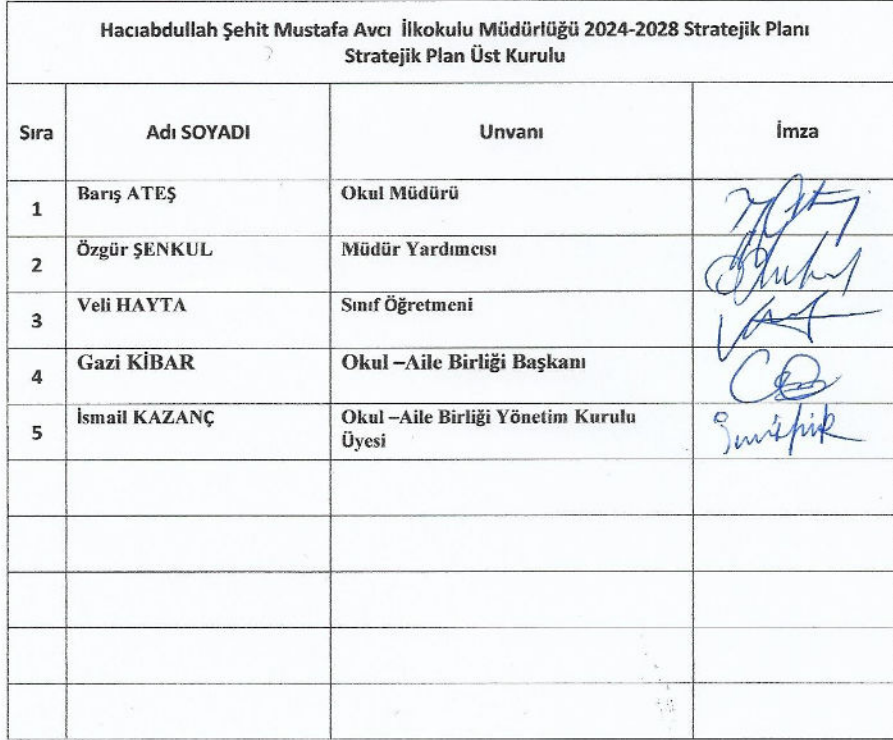 Hacıabdullah Şehit Mustafa Avcı İlkokulu Müdürlüğü 2024-2028 Stratejik Planı
Stratejik Plan Üst Kurulu
Sıra Adı SOYADI Unvanı İmza
1 Barış ATEŞ Okul Müdürü
2 Özgür ŞENKUL Müdür Yardımcısı
3 Veli HAYTA Sınıf Öğretmeni
4 Gazi KİBAR Okul –Aile Birliği Başkanı
5 İsmail KAZANÇ Okul –Aile Birliği Yönetim Kurulu
Üyesi